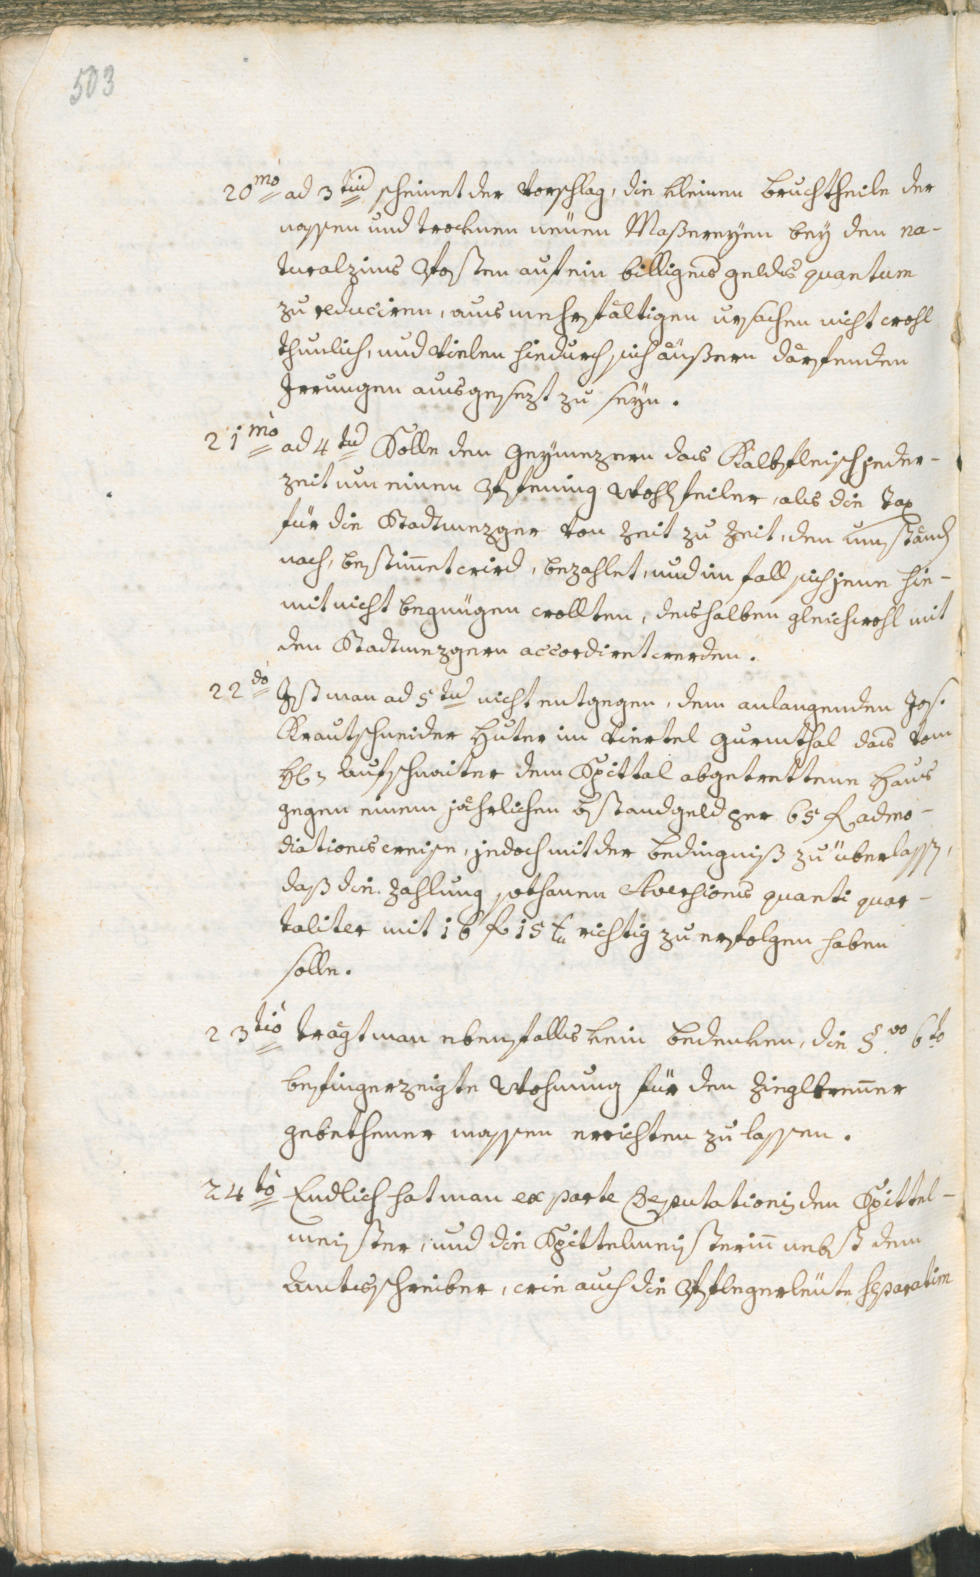 503
20mo ad 3tium scheinet der Vorschlag, die kleinen bruchtheile der
nassen und trocknen neuen Maßereyen bey den na-
turalzins Posten auf ein billiges geldes quantum
zu reduciren, aus mehrfältigen ursachen nicht wohl
thunlich, und vielen hiedurch sich äußern därfenden
Irrungen ausgesezt zu seyn.
21mo ad 4tum Solle den Geymezern das Kalbfleisch jeder-
zeit um einen Pfening wohlfeiler, als die Tax
für die Stadtmezger von Zeit zu Zeit, den umständ
nach, bestimet wird, bezahlet, und im fall sich jene hie-
mit nicht begnügen wollten, deshalben gleichwohl mit
den Stadtmezgern accordiret werden.
22do Ist man ad 5tum nicht entgegen, dem anlangenden Jos.
Krautschneider Huter im Viertel gurmthal das vom
H: Aufschnaiter dem Spittal abgetrettene Haus
gegen einem jährlichen Bstandgeld per 65 f admo-
diationsweise, jedoch mit der bedingniß zu überlassen,
daß die Zahlung sothanen Aversions quanti quar-
taliter mit 16 f 15 kr richtig zu erfolgen haben
solle.
23tio tragt man ebenfalls kein bedenken, die §vo 6to
befingerzeigte Wohnung für den Zieglbrenner
gebethener massen errichten zu lassen.
24to Endlich hat man ex parte Deputationis den Spittel-
meister, und die Spittelmeisterin nebst dem
Amtsschreiber, wie auch die Pflegerleute separatim